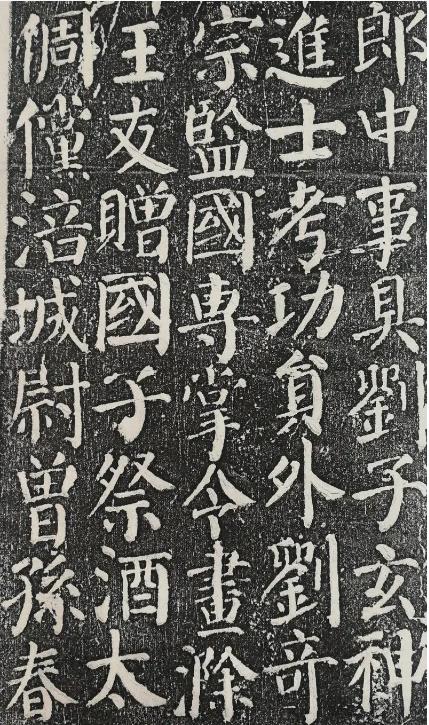 郎中事具劉子玄神
進士考功員外劉奇
宗監國專掌令畫滁
王友贈國子祭酒太
倜儻涪城尉曾孫春